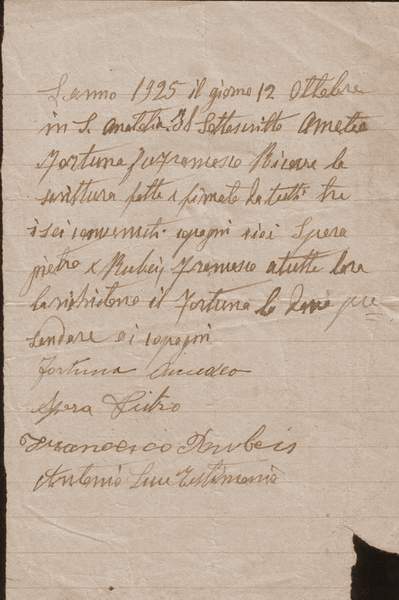 L'anno 1925 il giorno 12 Ottobre
in S. Anatolia. Il Sottoscritto Amedeo
Fortuna fu Francesco Riceve la
scrittura fatta e firmata da tutti tre
i sei convenuti copagni cioi Spera
pietro e Rubeis Francesco a tutte loro
la richistono il Fortuna la deve pre
sendare ai copagni
Fortuna Amedeo
Spera Pietro
Francesco DeRubeis
Antonio Luce Testimonio